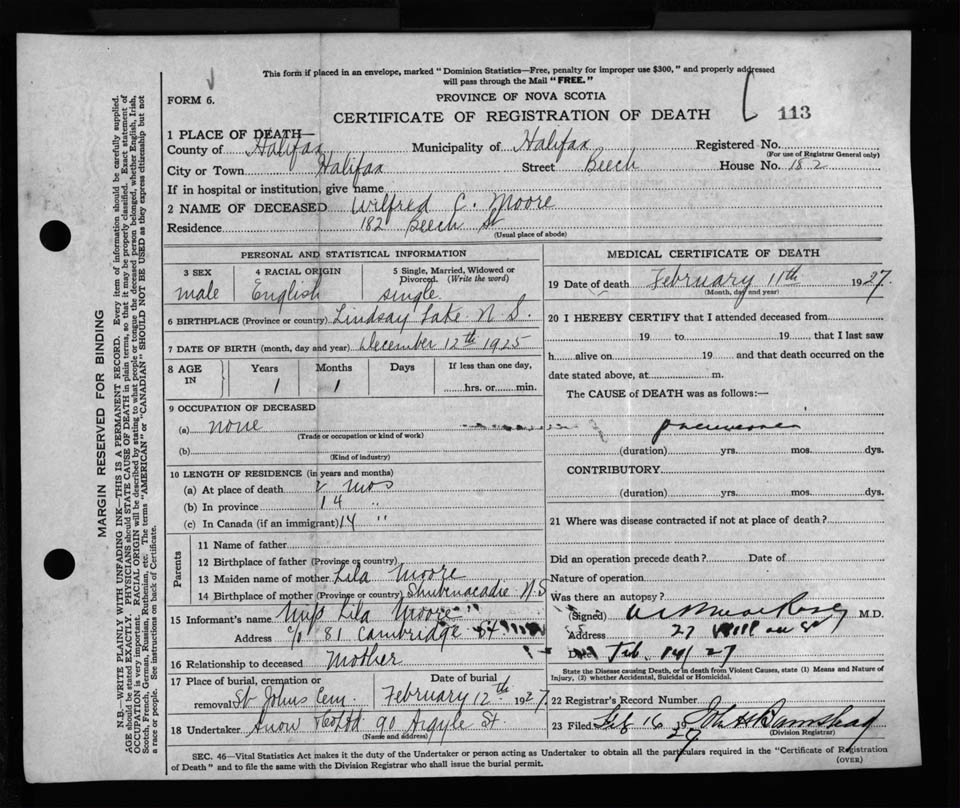 This form if placed in an envelope, marked "Dominion Statistics—Free, penalty for improper use $300," and properly addressed
will pass through the Mail "FREE."
FORM 6.
PROVINCE OF NOVA SCOTIA
CERTIFICATE OF REGISTRATION OF DEATH
113
1 PLACE OF DEATH—
County of Halifax Municipality of Halifax Registered No.
(For use of Registrar General only)
City or Town Halifax Street Beech House No. 182
If in hospital or institution, give name
2 NAME OF DECEASED Wilfred C. Moore
Residence 182 Beech St
(Usual place of abode)
PERSONAL AND STATISTICAL INFORMATION
3 SEX 4 RACIAL ORIGIN 5 Single, Married, Widowed or
Divorced. (Write the word)
male English single.
6 BIRTHPLACE (Province or country) Lindsay Lake N. S.
7 DATE OF BIRTH (month, day and year) December 12th 1925
8 AGE IN Years Months Days If less than one day,
1 1 hrs. or min.
9 OCCUPATION OF DECEASED
(a) none
(Trade or occupation or kind of work)
(b)
(Kind of industry)
10 LENGTH OF RESIDENCE (in years and months)
(a) At place of death 2 mos
(b) In province 14 "
(c) In Canada (if an immigrant) 14 "
Parents
11 Name of father
12 Birthplace of father (Province or country)
13 Maiden name of mother Lila Moore
14 Birthplace of mother (Province or country) Shubenacadie N.S
15 Informant's name Lila Moore
Address c/o 81 Cambridge St
16 Relationship to deceased Mother
17 Place of burial, cremation or Date of burial
removal St Johns Cem. February 12th 1927
18 Undertaker Snow & Co Ltd 90 Argyle St.
(Name and address)
MEDICAL CERTIFICATE OF DEATH
19 Date of death February 11th 1927.
(Month, day and year)
20 I HEREBY CERTIFY that I attended deceased from
19 to 19 that I last saw
h alive on 19 and that death occurred on the
date stated above, at m.
The CAUSE of DEATH was as follows:—
pneumonia
(duration) yrs. mos. dys.
CONTRIBUTORY
(duration) yrs. mos. dys.
21 Where was disease contracted if not at place of death?
Did an operation precede death? Date of
Nature of operation
Was there an autopsy?
(Signed) M.D.
Address 27
Date Feb. 14/27
State the Disease causing Death, or in death from Violent Causes, state (1) Means and Nature of
Injury, (2) whether Accidental, Suicidal or Homicidal.
22 Registrar's Record Number
23 Filed Feb 16 1927
(Division Registrar)
SEC. 46—Vital Statistics Act makes it the duty of the Undertaker or person acting as Undertaker to obtain all the particulars required in the "Certificate of Registration
of Death" and to file the same with the Division Registrar who shall issue the burial permit.
(OVER)
MARGIN RESERVED FOR BINDING
N.B.—WRITE PLAINLY WITH UNFADING INK—THIS IS A PERMANENT RECORD. Every item of information should be carefully supplied.
AGE should be stated EXACTLY. PHYSICIANS should STATE CAUSE OF DEATH in plain terms, so that it may be properly classified. Exact statement of
OCCUPATION is very important. RACIAL ORIGIN will be described by stating to what people or tongue the deceased person belonged, whether English, Irish,
Scotch, French, German, Russian, Ruthenian, etc. The terms "AMERICAN" or "CANADIAN" SHOULD NOT BE USED as they express citizenship but not
a race or people. See instructions on back of Certificate.